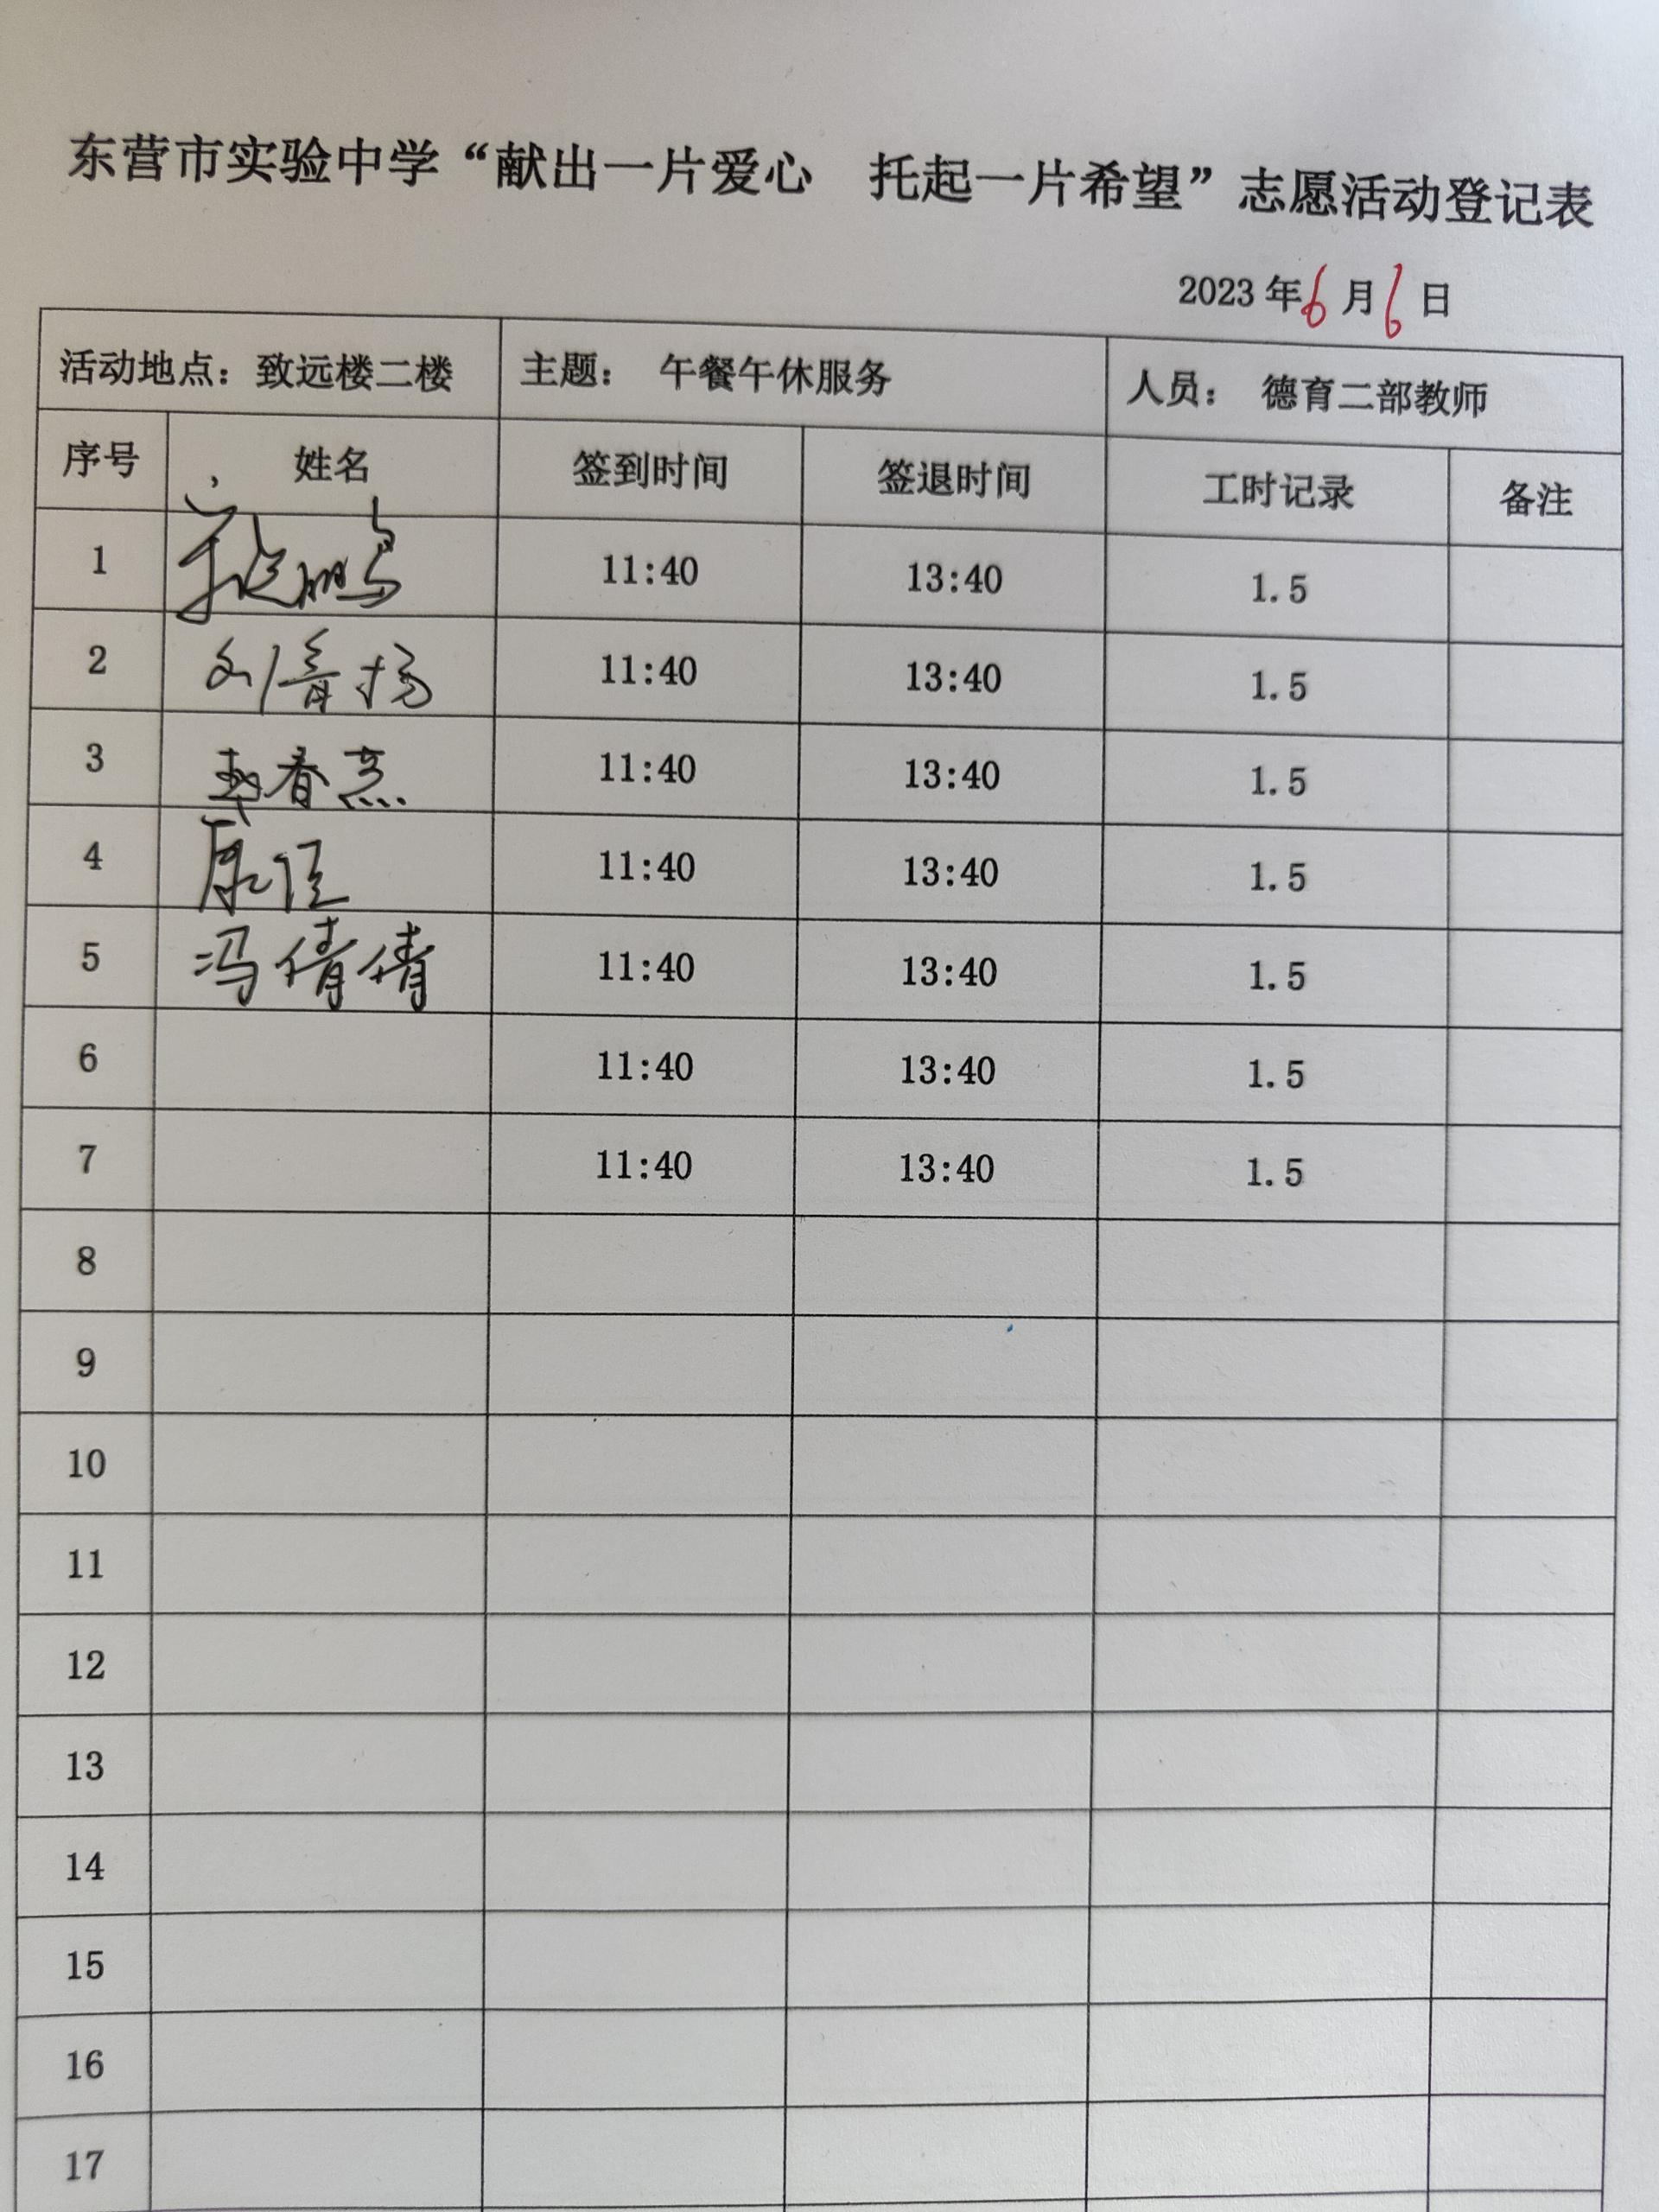 东营市实验中学“献出一片爱心　托起一片希望”志愿活动登记表
2023 年 6 月 6 日
活动地点：致远楼二楼 主题： 午餐午休服务 人员： 德育二部教师
序号 姓名 签到时间 签退时间 工时记录 备注
1 11:40 13:40 1.5
2 11:40 13:40 1.5
3 春燕 11:40 13:40 1.5
4 康佳 11:40 13:40 1.5
5 冯倩倩 11:40 13:40 1.5
6 11:40 13:40 1.5
7 11:40 13:40 1.5
8
9
10
11
12
13
14
15
16
17